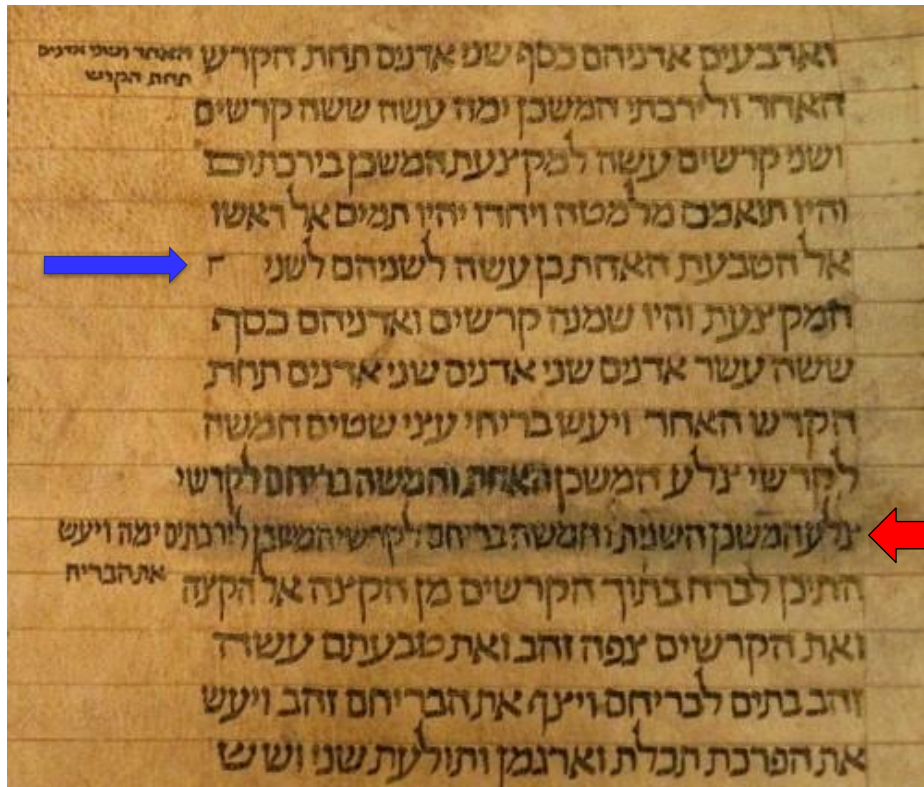 וארבעים אדניהם כסף שני אדנים תחת הקרש
האחד ושני אדנים
תחת הקרש
האחד ולירכתי המשכן ימה עשה ששה קרשים
ושני קרשים עשה למקצעת המשכן בירכתים
והיו תואמם מלמטה ויחדו יהיו תמים אל ראשו
אל הטבעת האחת כן עשה לשניהם לשני
המקצעת והיו שמנה קרשים ואדניהם כסף
ששה עשר אדנים שני אדנים שני אדנים תחת
הקרש האחד ויעש בריחי עצי שטים חמשה
לקרשי צלע המשכן האחת וחמשה בריחם לקרשי
צלע המשכן השנית וחמשה בריחם לקרשי המשכן לירכתים ימה ויעש
את הבריח
התיכן לברח בתוך הקרשים מן הקצה אל הקצה
ואת הקרשים צפה זהב ואת טבעתם עשה
זהב בתים לבריחם ויצף את הבריחם זהב ויעש
את הפרכת תכלת וארגמן ותולעת שני ושש